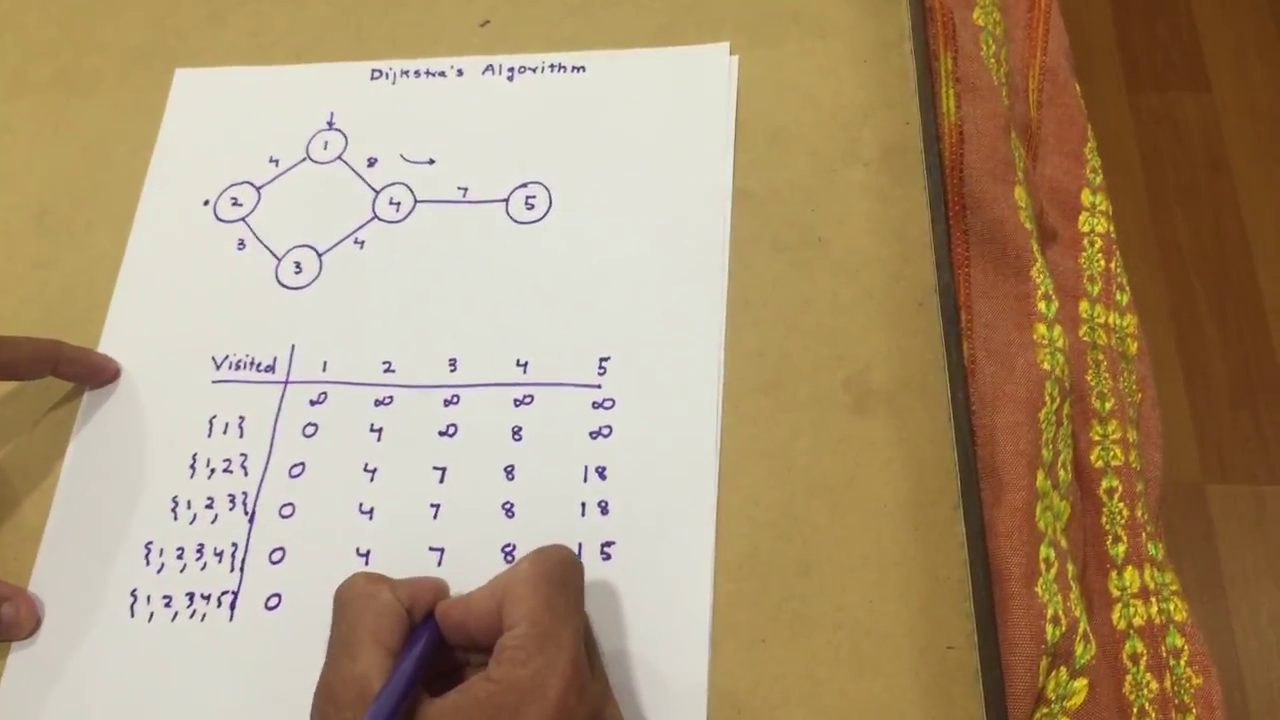 Dijkstra's Algorithm
1
4 8
2 4 7 5
3 4
3
Visited 1 2 3 4 5
∞ ∞ ∞ ∞ ∞
{1} 0 4 ∞ 8 ∞
{1,2} 0 4 7 8 18
{1,2,3} 0 4 7 8 18
{1,2,3,4} 0 4 7 8 15
{1,2,3,4,5} 0